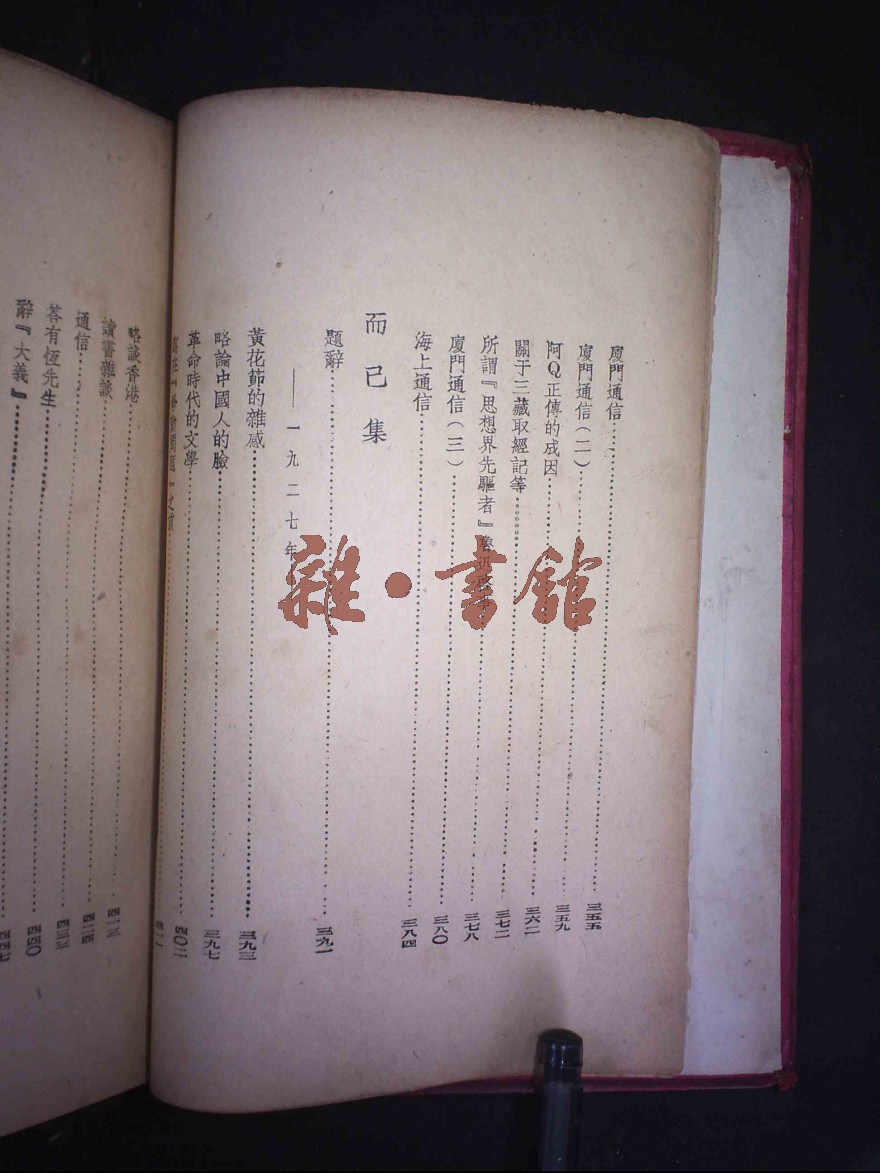 廈門通信……三五五
廈門通信(二)……三五九
阿Q正傳的成因……三六二
關于三藏取經記等……三七二
所謂『思想界先驅者』魯迅啟事……三七八
廈門通信(三)……三八〇
海上通信……三八四
而已集
題辭……三九一
——一九二七年
黃花節的雜感……三九三
略論中國人的臉……三九七
革命時代的文學……四〇二
略談香港……四一三
讀書雜談……四二四
通信……四三三
答有恆先生……四四〇
辭『大義』……四四七
雜·書館